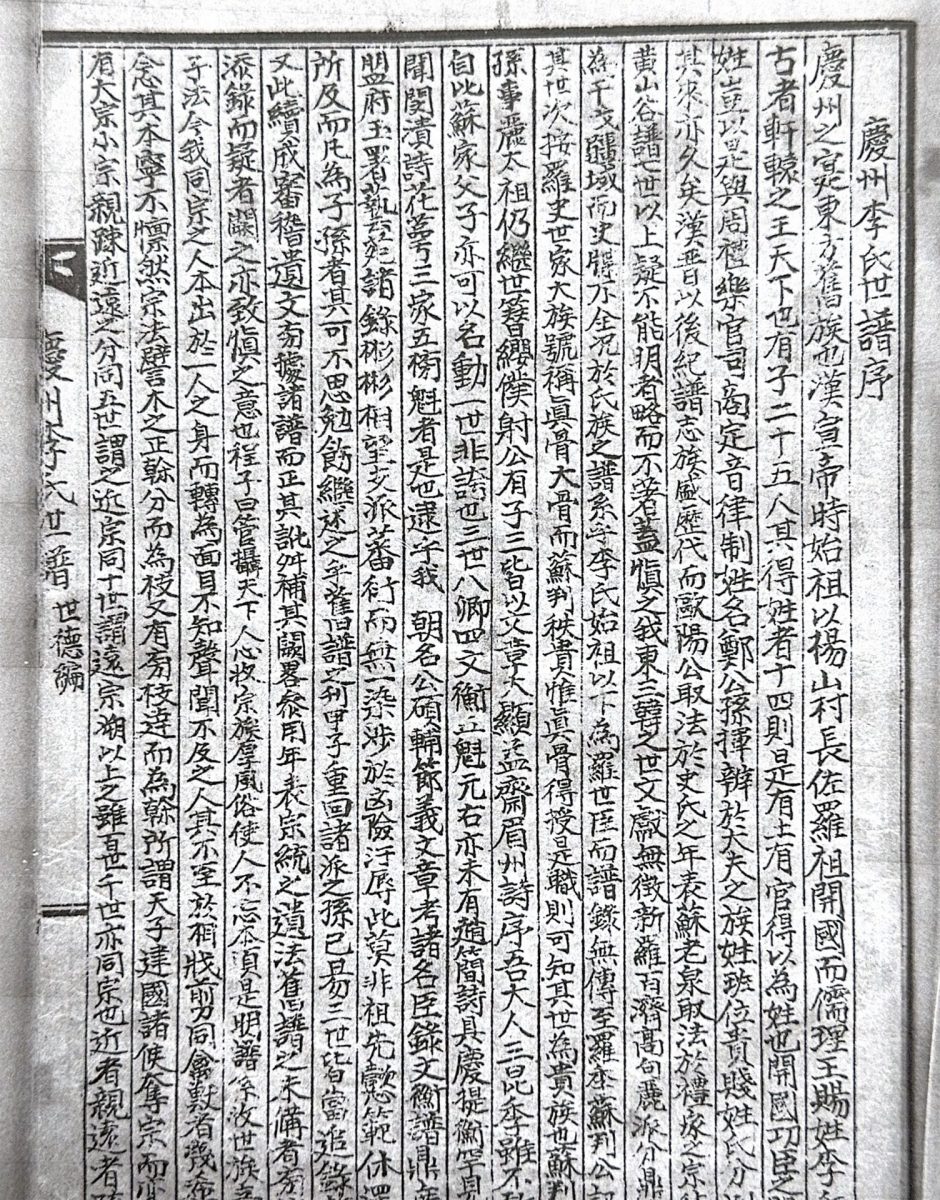 慶州李氏世譜序
慶州之李東方舊族也漢宣帝時始祖以楊山村長佐羅祖開國而儒理王賜姓李
古者軒轅之王天下也有子二十五人其得姓者十四則是有土有官得以為姓也開國功臣之
姓豈以是與周禮樂官司商定音律制姓名鄭公孫揮辨於大夫之族姓班位貴賤姓氏分
其來亦久矣漢晉以後紀譜志族盛歷代而歐陽公取法於史氏之年表蘇老泉取法於禮家之宗
黃山谷譜七世以上疑不能明者略而不著蓋愼之我東三韓之世文獻無徵新羅百濟高句麗派分鼎
為干戈疆域而史牒不全況於氏族之譜系乎李氏始祖以下為羅世臣而譜錄無傳至羅季蘇判公
其世次按羅史世家大族號稱眞骨大骨而蘇判秩貴惟眞骨得授是職則可知其世為貴族也蘇判
孫事麗太祖仍繼世簪纓僕射公有子三皆以文章大顯益齋眉州詩序吾大人三昆季雖不
自比蘇家父子亦可以名動一世非誇也三世八卿四文衡五魁元右亦未有趙簡詩具慶提衡罕見
聞閔漬詩花萼三家五榜魁者是也逮乎我 朝名公碩輔節義文章考諸名臣錄文衡譜鼎
盟府玉署藝苑諸錄彬彬相望支派蕃衍而無一染涉於凶險汙辱此莫非祖先懿範休
所及而凡為子孫者其可不思勉飭繼述之乎舊譜之刊甲子重回諸派之孫已易三世皆當追錄
又此續成審稽遺文旁據諸譜而正其訛舛補其闕畧參用年表宗統之遺法舊譜之未備者旁
添錄而疑者闕之亦致愼之意也程子曰管攝天下人心收宗族厚風俗使人不忘本須是明譜系收世族立
子法今我同宗之人本出於一人之身而轉為面目不知聲聞不及之人其不至於相戕前同禽獸者幾希
念其本寧不懍然宗法譬木之正榦分而為枝又有旁枝達而為榦所謂天子建國諸侯奪宗而
有大宗小宗親疎近遠之分同五世謂之近宗同十世謂遠宗溯以上之雖百世千世亦同宗也近者親遠者
慶州李氏世譜 世德編